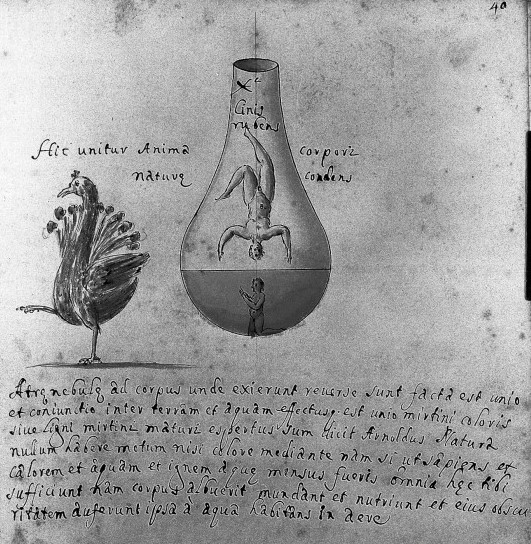 40
Cinis
rubens
Hic unitur Anima corpori
naturę condens
Atrę nebulę ad corpus unde exierunt reverse sunt facta est unio
et coniunctio inter terram et aquam effectusq est unio mirtini coloris
siue ligni mirtini maturi expertus sum dicit Arnoldus Natura
nulum habere motum nisi calore mediante nam si ut sapiens et
calorem et aquam et ignem aquę mensus fueris omnia hęc tibi
sufficiunt nam corpus albuerit mundant et nutriunt et eius obscu
ritatem auferunt ipsa a aqua habitans in aere